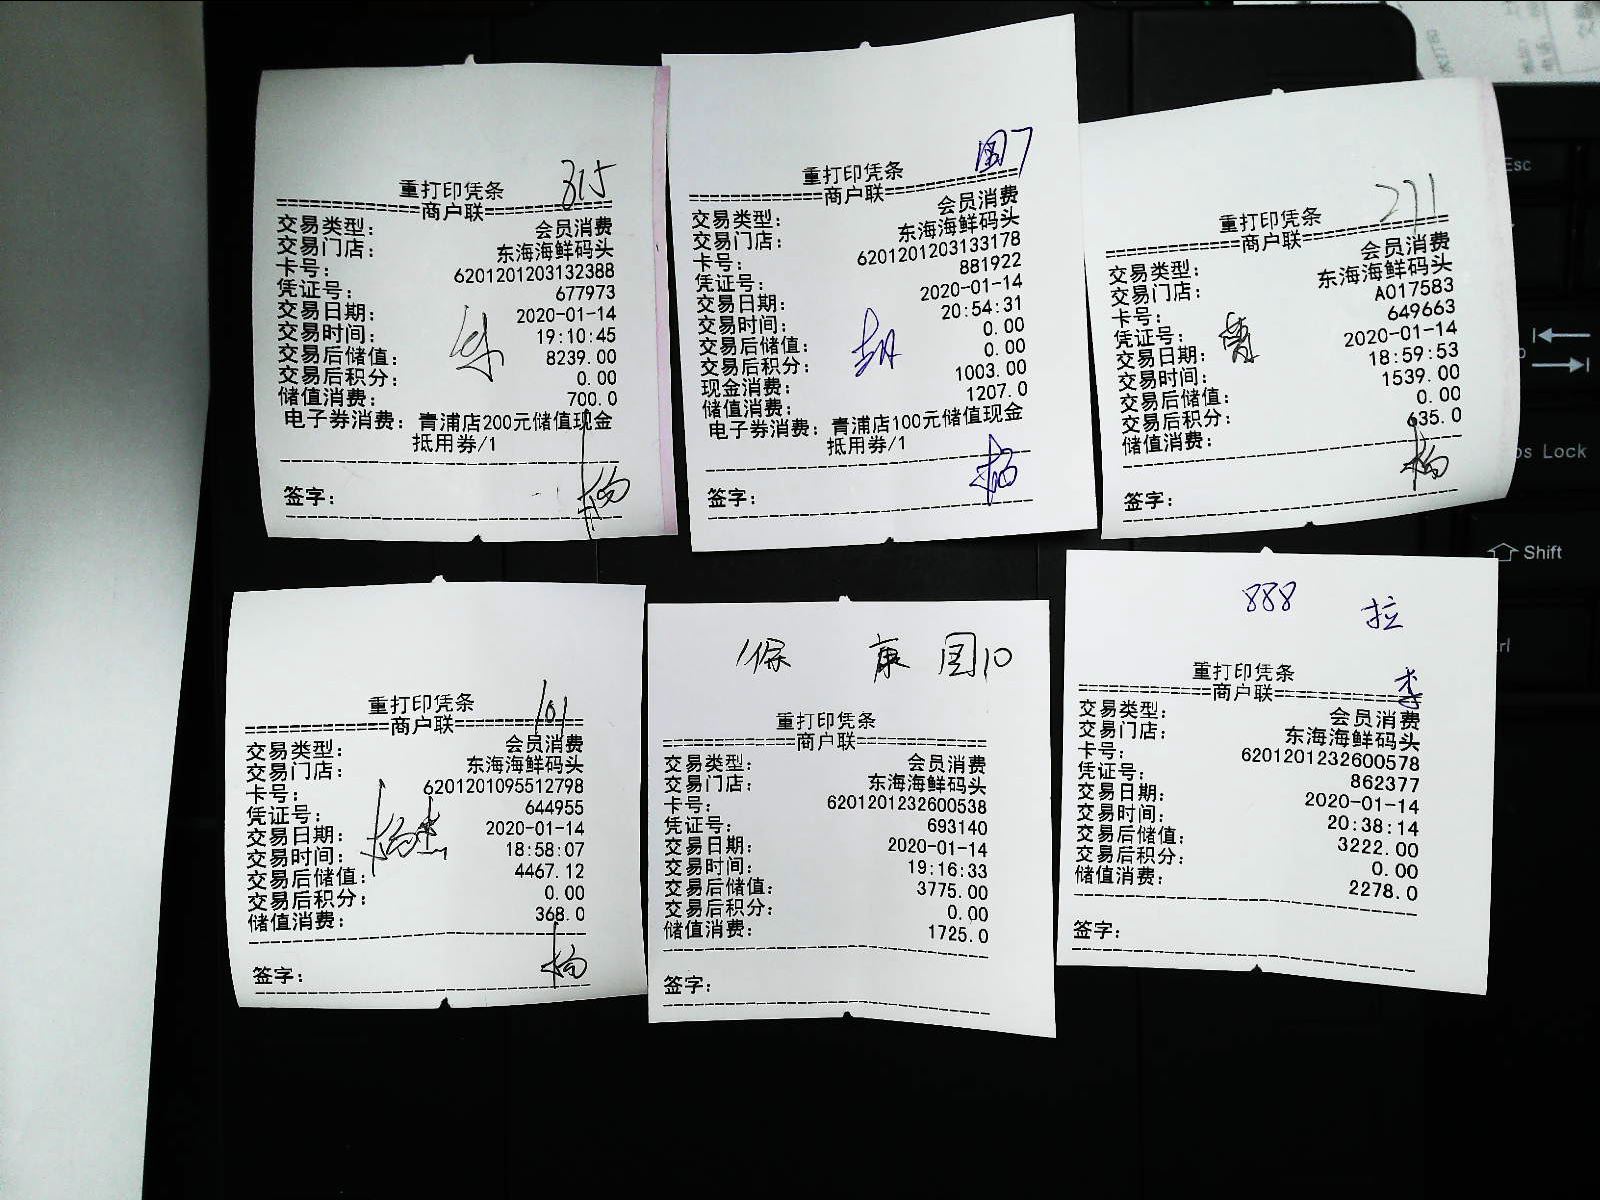 315
重打印凭条
=============商户联=============
交易类型： 会员消费
交易门店： 东海海鲜码头
卡号： 6201201203132388
凭证号： 677973
交易日期： 2020-01-14
交易时间： 19:10:45
交易后储值： 8239.00
交易后积分： 0.00
储值消费： 700.0
电子券消费： 青浦店200元储值现金
抵用券/1
签字： 杨
国7
重打印凭条
=============商户联=============
交易类型： 会员消费
交易门店： 东海海鲜码头
卡号： 6201201203133178
凭证号： 881922
交易日期： 2020-01-14
交易时间： 20:54:31
交易后储值： 0.00
交易后积分： 0.00
现金消费： 1003.00
储值消费： 1207.0
电子券消费： 青浦店100元储值现金
抵用券/1
签字：
271
重打印凭条
=============商户联=============
交易类型： 会员消费
交易门店： 东海海鲜码头
卡号： A017583
凭证号： 649663
交易日期： 2020-01-14
交易时间： 18:59:53
交易后储值： 1539.00
交易后积分： 0.00
储值消费： 635.0
签字： 杨
101
重打印凭条
=============商户联=============
交易类型： 会员消费
交易门店： 东海海鲜码头
卡号： 6201201095512798
凭证号： 644955
交易日期： 2020-01-14
交易时间： 18:58:07
交易后储值： 4467.12
交易后积分： 0.00
储值消费： 368.0
签字： 杨
康 国10
重打印凭条
=============商户联=============
交易类型： 会员消费
交易门店： 东海海鲜码头
卡号： 6201201232600538
凭证号： 693140
交易日期： 2020-01-14
交易时间： 19:16:33
交易后储值： 3775.00
交易后积分： 0.00
储值消费： 1725.0
签字：
888 拉
李
重打印凭条
=============商户联=============
交易类型： 会员消费
交易门店： 东海海鲜码头
卡号： 6201201232600578
凭证号： 862377
交易日期： 2020-01-14
交易时间： 20:38:14
交易后储值： 3222.00
交易后积分： 0.00
储值消费： 2278.0
签字：
Esc
Lock
Shift